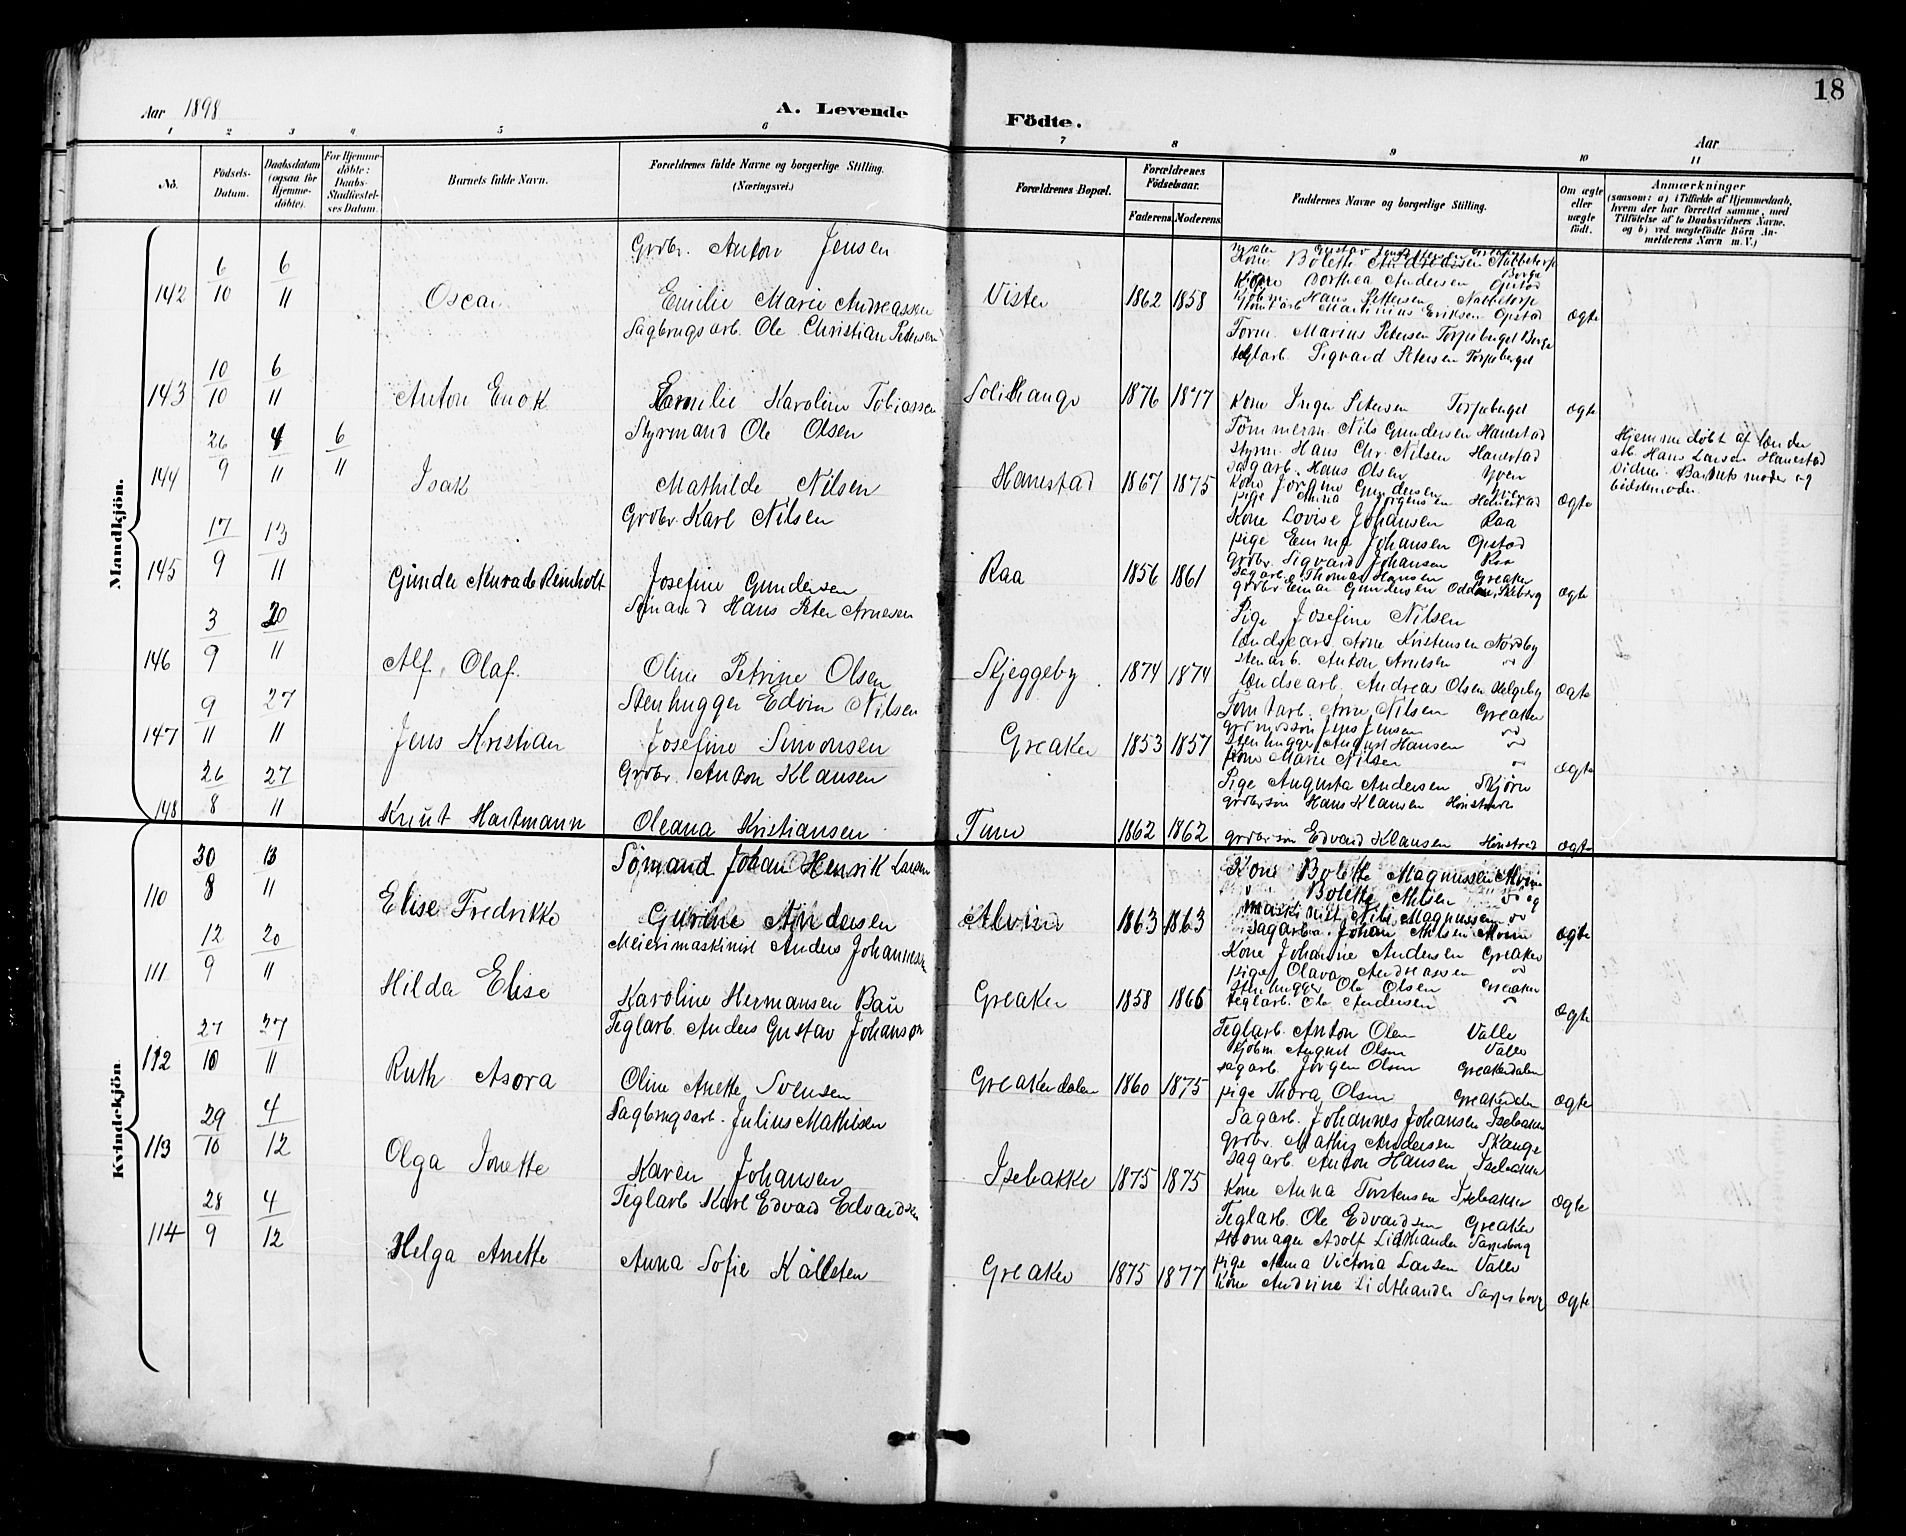 18
Aar 1898
A. Levende Födte.
Aar
1 2 3 4 5 6 7 8 9 10 11
No.
Födsels-Datum.
Daabsdatum (ogsaa for Hjemme-döbte).
For Hjemme-döbte: Daabs-Stadfæstel-ses Datum.
Barnets fulde Navn.
Forældrenes fulde Navne og borgerlige Stilling. (Næringsvei.)
Forældrenes Bopæl.
Forældrenes Födselsaar.
Faderens. Moderens.
Faddernes Navne og borgerlige Stilling.
Om ægte eller uægte födt.
Anmærkninger
(saasom: a) i Tilfælde af Hjemmedaab, hvem der har forrettet samme, med Tilföielse af to Daabsvidners Navne. og b) ved uægtefödte Börn An-melderens Navn m. V.)
Mandkjön.
142 6/10 6/11 Oscar
Grdbr. Anton Jensen
Emilie Marie Andreassen
Vister 1862 1858
Kone Bolette Andresen Nabbetorp
Kone Dorthea Andersen Opstad
Hans Pettersen Nabbetorp
Martinius Eriksen Opstad
ægte
143 10/10 6/11 Anton Enok
Sagbrugsarb. Ole Christian Petersen
Emilie Karoline Tobiassen
1876 1877
Form. Marius Petersen Torpeberget Borge
teglarb. Sigvard Petersen Torpeberget
Kone Inga Petersen Torpeberget
ægte
144 26/9 4/11 6/11 Isak
Styrmand Ole Olsen
Mathilde Nilsen
Hanestad 1867 1875
Tømmerm. Nils Gundersen Hanestad
styrm. Hans Chr. Nilsen Hanestad
sagarb. Hans Olsen Yven
Kone Jørgine Gundersen
pige Anna Jørgensen Hanestad
ægte
Hjemmedøbt af lænde
arb. Hans Larsen Hanestad
Vidner: Barnets moder og
bedstemoder.
145 17/9 13/11 Gunder Konrad Reinholt
Grdbr. Karl Nilsen
Josefine Gundersen
Raa 1856 1861
Kone Lovise Johansen Raa
pige Emma Johansen Opstad
grdbr. Sigvard Johansen Raa
sagarb. Thomas Hansen Greaker
grdbr. Einar Gundersen Skeberg
ægte
146 3/9 20/11 Alf Olaf.
Sømand Hans Peter Arnesen
Oline Petrine Olsen
Skjeggeby 1874 1874
Pige Josefine Nilsen
lændsearb. Arne Kristensen Nordby
stenarb. Anton Arnesen do
lændsearb. Andreas Olsen Helgeby
ægte
147 9/11 27/11 Jens Kristian
Stenhugger Edvin Nilsen
Josefine Simonsen
Greaker 1853 1857
Tomtarb. Arne Nilsen Greaker
grdmdssøn Jens Jensen do
Stenhugger August Hansen do
Kone Marie Nilsen do
ægte
148 26/8 27/11 Knut Hartmann
Grdbr. Anton Klausen
Oleana Kristiansen
Tune 1862 1862
Pige Augusta Andersen Skjørn
grdbrsøn Hans Klausen
grdbrsøn Edvard Klausen
ægte
Kvindekjön
110 30/8 13/11 Elise Fredrikke
Sømand Johan Henrik Larsen
Gurine Andersen
Alvim 1863 1863
Kone Bolette Magnussen Alvim
Bolette Nilsen do
maskinist Nils Magnussen do
sagarb. Johan Nilsen Alvim
ægte
111 12/9 20/11 Hilda Elise
Meierimaskinist Anders Johannessen
Karoline Hermansen Bau
Greaker 1858 1866
Kone Johanne Andersen Greaker
pige Olava Andreassen do
Stenhugger Ole Olsen Greaker
teglarb. Ole Andersen do
ægte
112 27/10 27/11 Ruth Asora
Teglarb. Anders Gustav Johanson
Oline Anette Svensen
Greakerdalen 1860 1875
Teglarb. Anton Olsen Valle
Skjøbm. August Olsen Valle
sagarb. Jørgen Olsen Greakerdalen
pige Thora Olsen Greakerdalen
ægte
113 29/10 4/12 Olga Jonette
Sagbrugsarb. Julius Mathisen
Karen Johansen
Isebakke 1875 1875
Sagarb. Johannes Johansen Isebakke
grdbr. Mathis Andersen Skange
sagarb. Anton Hansen Isebakke
Kone Anna Torstensen Isebakke
ægte
114 28/9 4/12 Helga Anette
Teglarb. Karl Edvard Edvardsen
Anna Sofie Källsten
Greaker 1875 1877
Teglarb. Ole Edvardsen Greaker
skomager Adolf Lidthander Sarpsborg
pige Anna Victoria Larsen Valle
Kone Andrine Lidthander Sarpsborg
ægte